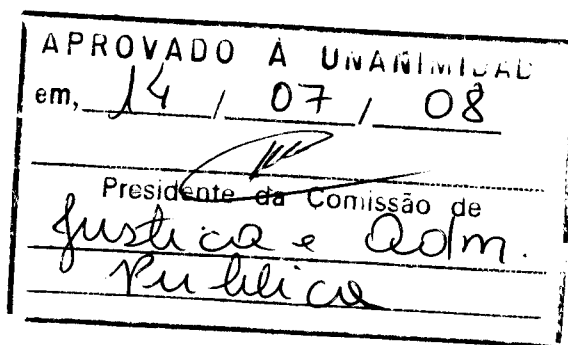 APROVADO À UNANIMIDAD
em, 14 / 07 / 08
Presidente da Comissão de
Justica e Adm.
Publica